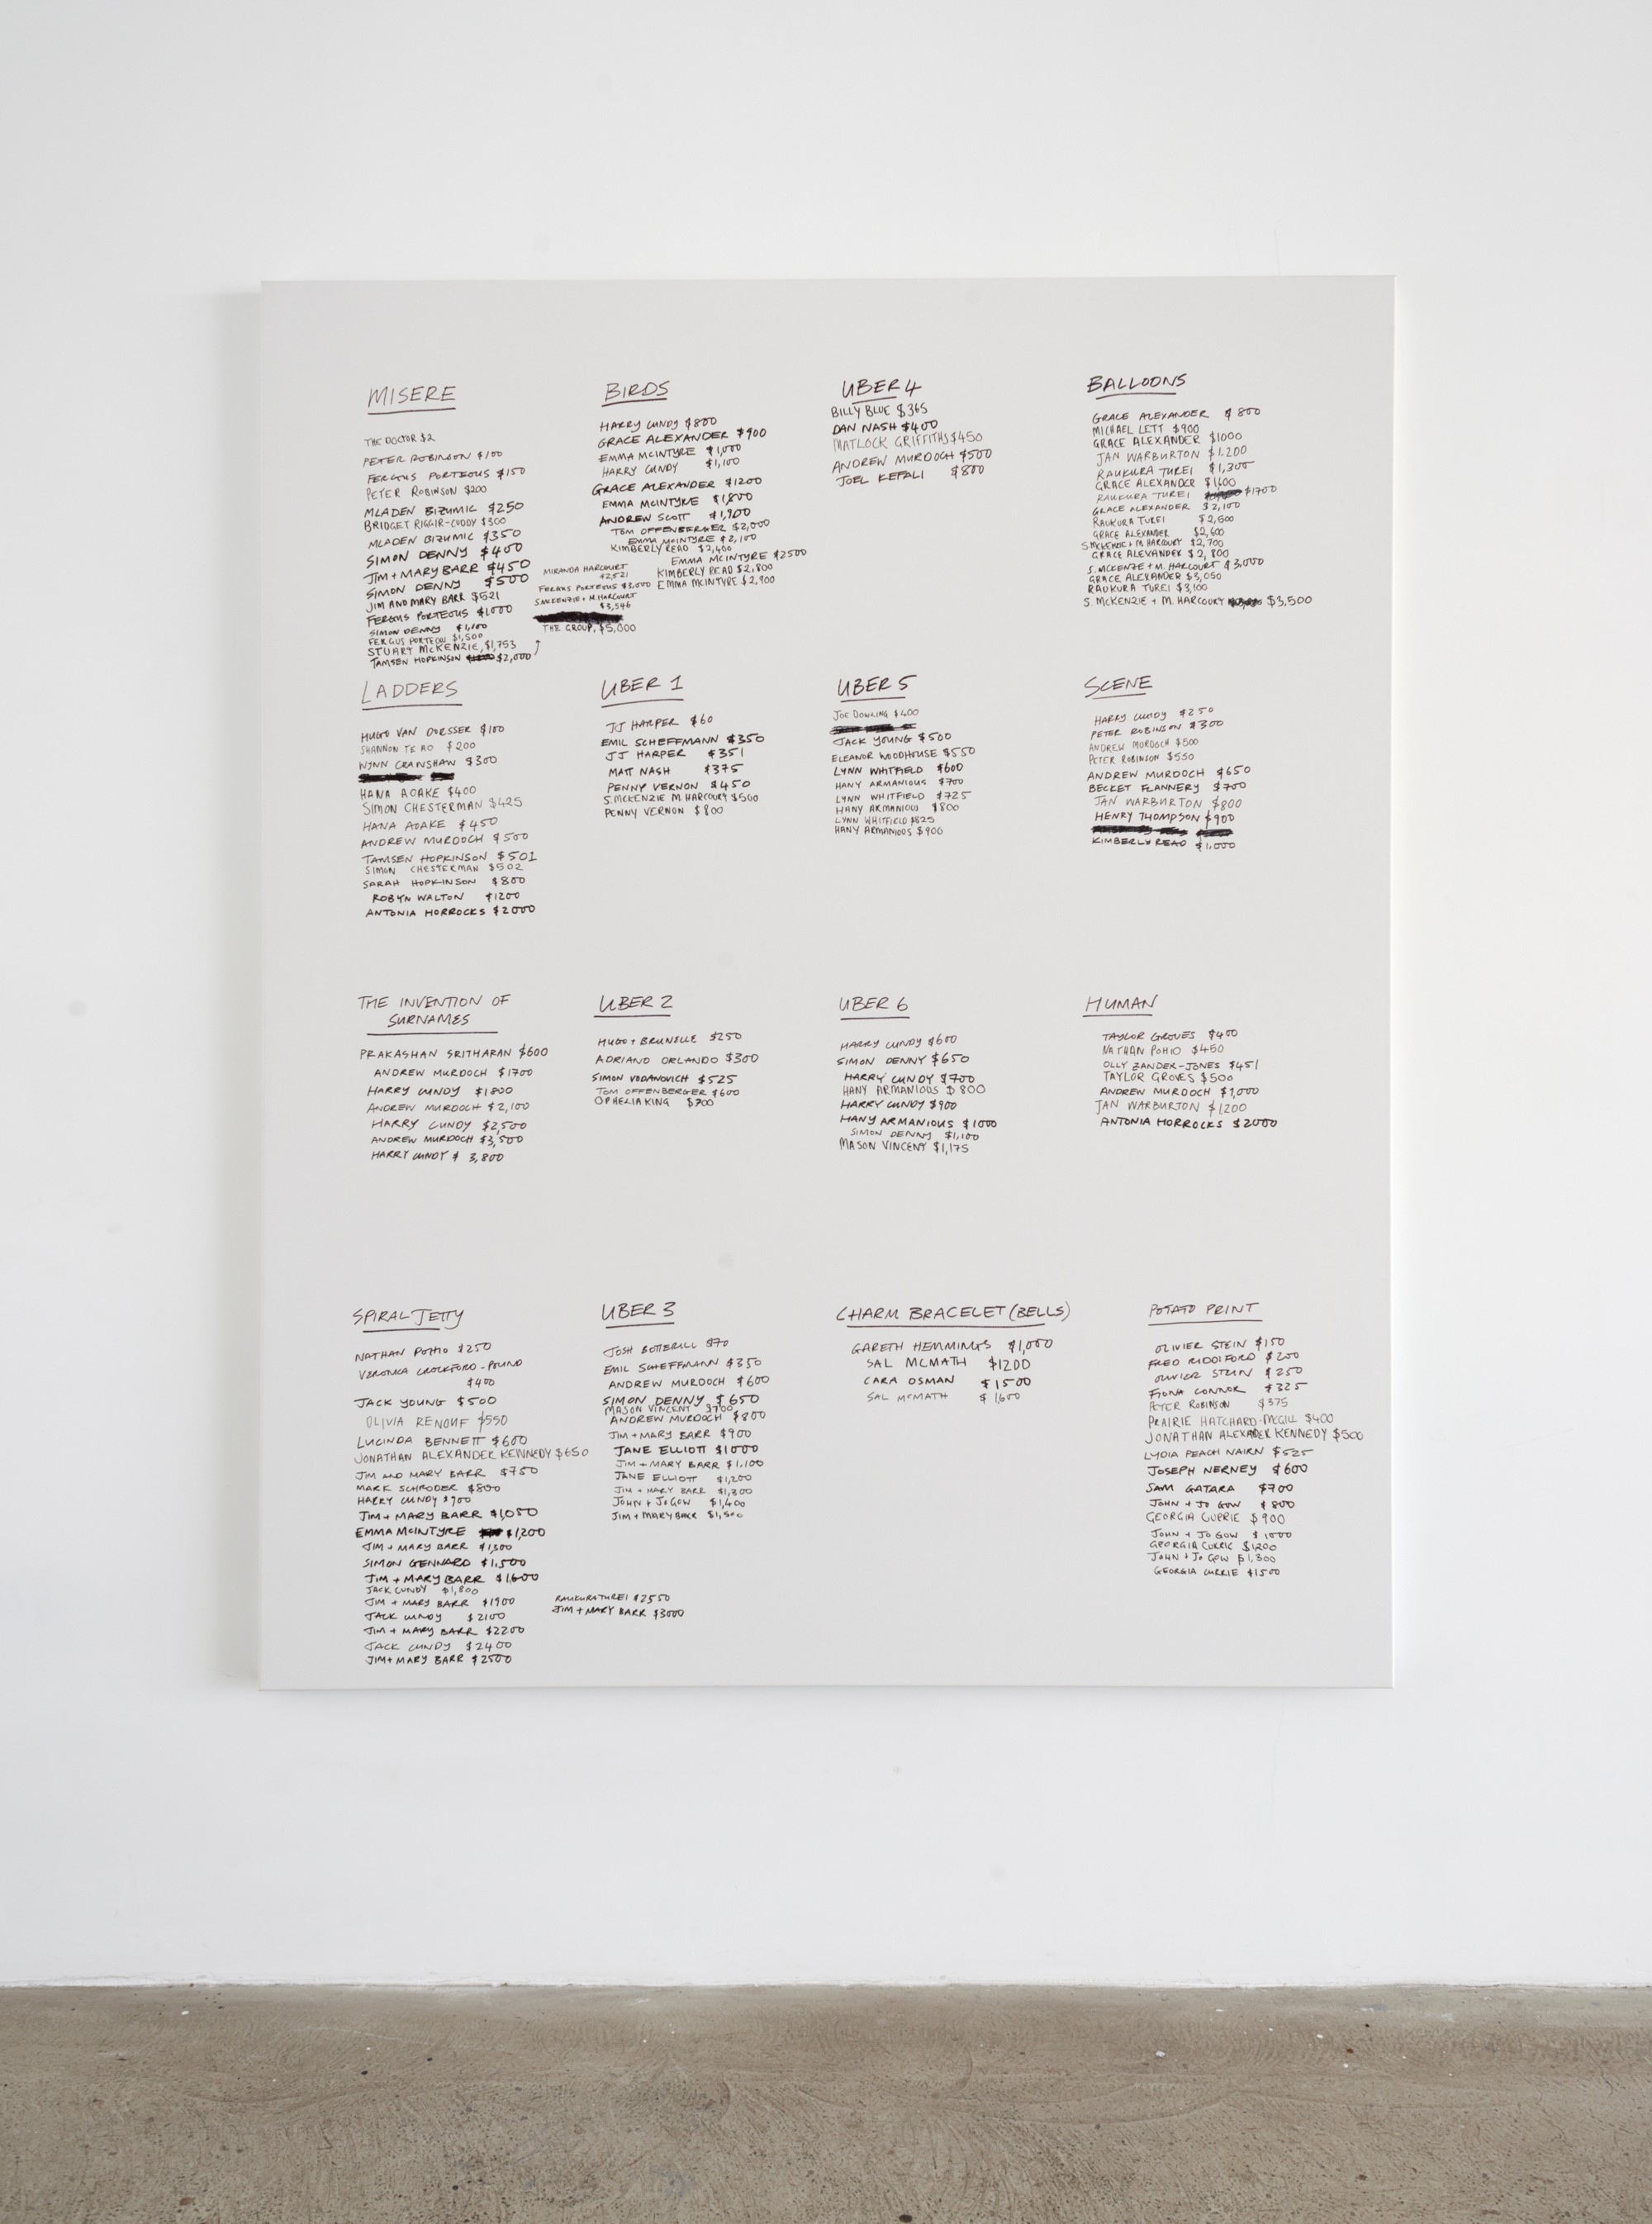 MISERE
THE DOCTOR $2
PETER ROBINSON $100
FERGUS PORTEOUS $150
PETER ROBINSON $200
MLADEN BIZUMIC $250
BRIDGET RIGGIR-CUDDY $300
MLADEN BIZUMIC $350
SIMON DENNY $400
JIM + MARY BARR $450
SIMON DENNY $500
JIM AND MARY BARR $521
FERGUS PORTEOUS $1000
SIMON DENNY $1,100
FERGUS PORTEOUS $1,500
STUART MCKENZIE, $1,753
TAMSEN HOPKINSON $2,000
MIRANDA HARCOURT
$2,521
FERGUS PORTEOUS $3,000
S.MCKENZIE + M.HARCOURT
$3,546
THE GROUP, $5,000
BIRDS
HARRY CUNDY $800
GRACE ALEXANDER $900
EMMA MCINTYRE $1,000
HARRY CUNDY $1,100
GRACE ALEXANDER $1200
EMMA MCINTYRE $1,800
ANDREW SCOTT $1,900
TOM OFFENBERGER $2,000
EMMA MCINTYRE $2,100
KIMBERLY READ $2,400
EMMA MCINTYRE $2500
KIMBERLY READ $2,800
EMMA MCINTYRE $2,900
UBER 4
BILLY BLUE $365
DAN NASH $400
MATLOCK GRIFFITHS $450
ANDREW MURDOCH $500
JOEL KEFALI $800
BALLOONS
GRACE ALEXANDER $800
MICHAEL LETT $900
GRACE ALEXANDER $1000
JAN WARBURTON $1,200
RAUKURA TUREI $1,300
GRACE ALEXANDER $1,600
RAUKURA TUREI $1700
GRACE ALEXANDER $2,100
RAUKURA TUREI $2,500
GRACE ALEXANDER $2,600
S.MCKENZIE + M. HARCOURT $2,700
GRACE ALEXANDER $2,800
S. MCKENZIE + M. HARCOURT $3,000
GRACE ALEXANDER $3,050
RAUKURA TUREI $3,100
S. MCKENZIE + M. HARCOURT $3,500
LADDERS
HUGO VAN DORSSER $100
SHANNON TE AO $200
WYNN CRAWSHAW $300
HANA AOAKE $400
SIMON CHESTERMAN $425
HANA AOAKE $450
ANDREW MURDOCH $500
TAMSEN HOPKINSON $501
SIMON CHESTERMAN $502
SARAH HOPKINSON $800
ROBYN WALTON $1200
ANTONIA HORROCKS $2000
UBER 1
JJ HARPER $60
EMIL SCHEFFMANN $350
JJ HARPER $351
MATT NASH $375
PENNY VERNON $450
S.MCKENZIE M.HARCOURT $500
PENNY VERNON $800
UBER 5
JOE DOWLING $400
JACK YOUNG $500
ELEANOR WOODHOUSE $550
LYNN WHITFIELD $600
HANY ARMANIOUS $700
LYNN WHITFIELD $725
HANY ARMANIOUS $800
LYNN WHITFIELD $825
HANY ARMANIOUS $900
SCENE
HARRY CUNDY $250
PETER ROBINSON $300
ANDREW MURDOCH $500
PETER ROBINSON $550
ANDREW MURDOCH $650
BECKET FLANNERY $700
JAN WARBURTON $800
HENRY THOMPSON $900
KIMBERLY READ $1,000
THE INVENTION OF
SURNAMES
PRAKASHAN SRITHARAN $600
ANDREW MURDOCH $1700
HARRY CUNDY $1800
ANDREW MURDOCH $2,100
HARRY CUNDY $2,500
ANDREW MURDOCH $3,500
HARRY CUNDY $3,800
UBER 2
HUGO + BRUNELLE $250
ADRIANO ORLANDO $300
SIMON VODANOVICH $525
TOM OFFENBERGER $600
OPHELIA KING $700
UBER 6
HARRY CUNDY $600
SIMON DENNY $650
HARRY CUNDY $700
HANY ARMANIOUS $800
HARRY CUNDY $900
HANY ARMANIOUS $1000
SIMON DENNY $1,100
MASON VINCENT $1,175
HUMAN
TAYLOR GROVES $400
NATHAN POHIO $450
OLLY ZANDER-JONES $451
TAYLOR GROVES $500
ANDREW MURDOCH $1,000
JAN WARBURTON $1200
ANTONIA HORROCKS $2000
SPIRAL JETTY
NATHAN POHIO $250
VERONICA CROCKFORD-POUND
$400
JACK YOUNG $500
OLIVIA RENOUF $550
LUCINDA BENNETT $600
JONATHAN ALEXANDER KENNEDY $650
JIM AND MARY BARR $750
MARK SCHRODER $800
HARRY CUNDY $900
JIM + MARY BARR $1,050
EMMA MCINTYRE $1,200
JIM + MARY BARR $1,300
SIMON GENNARD $1,500
JIM + MARY BARR $1,600
JACK CUNDY $1,800
JIM + MARY BARR $1900
JACK CUNDY $2100
JIM + MARY BARR $2200
JACK CUNDY $2400
JIM + MARY BARR $2500
RAUKURA TUREI $2550
JIM + MARY BARR $3000
UBER 3
JOSH BOTTERILL $70
EMIL SCHEFFMANN $350
ANDREW MURDOCH $600
SIMON DENNY $650
MASON VINCENT $700
ANDREW MURDOCH $800
JIM + MARY BARR $900
JANE ELLIOTT $1000
JIM + MARY BARR $1,100
JANE ELLIOTT $1,200
JIM + MARY BARR $1,300
JOHN + JO GOW $1,400
JIM + MARY BARR $1,500
CHARM BRACELET (BELLS)
GARETH HEMMINGS $1,000
SAL MCMATH $1200
CARA OSMAN $1500
SAL MCMATH $1600
POTATO PRINT
OLIVIER STEIN $150
FRED RIDDIFORD $200
OLIVIER STEIN $250
FIONA CONNOR $325
PETER ROBINSON $375
PRAIRIE HATCHARD-MCGILL $400
JONATHAN ALEXANDER KENNEDY $500
LYDIA PEACH NAIRN $525
JOSEPH NERNEY $600
SAM GATARA $700
JOHN + JO GOW $800
GEORGIA CURRIE $900
JOHN + JO GOW $1000
GEORGIA CURRIE $1200
JOHN + JO GOW $1,300
GEORGIA CURRIE $1500